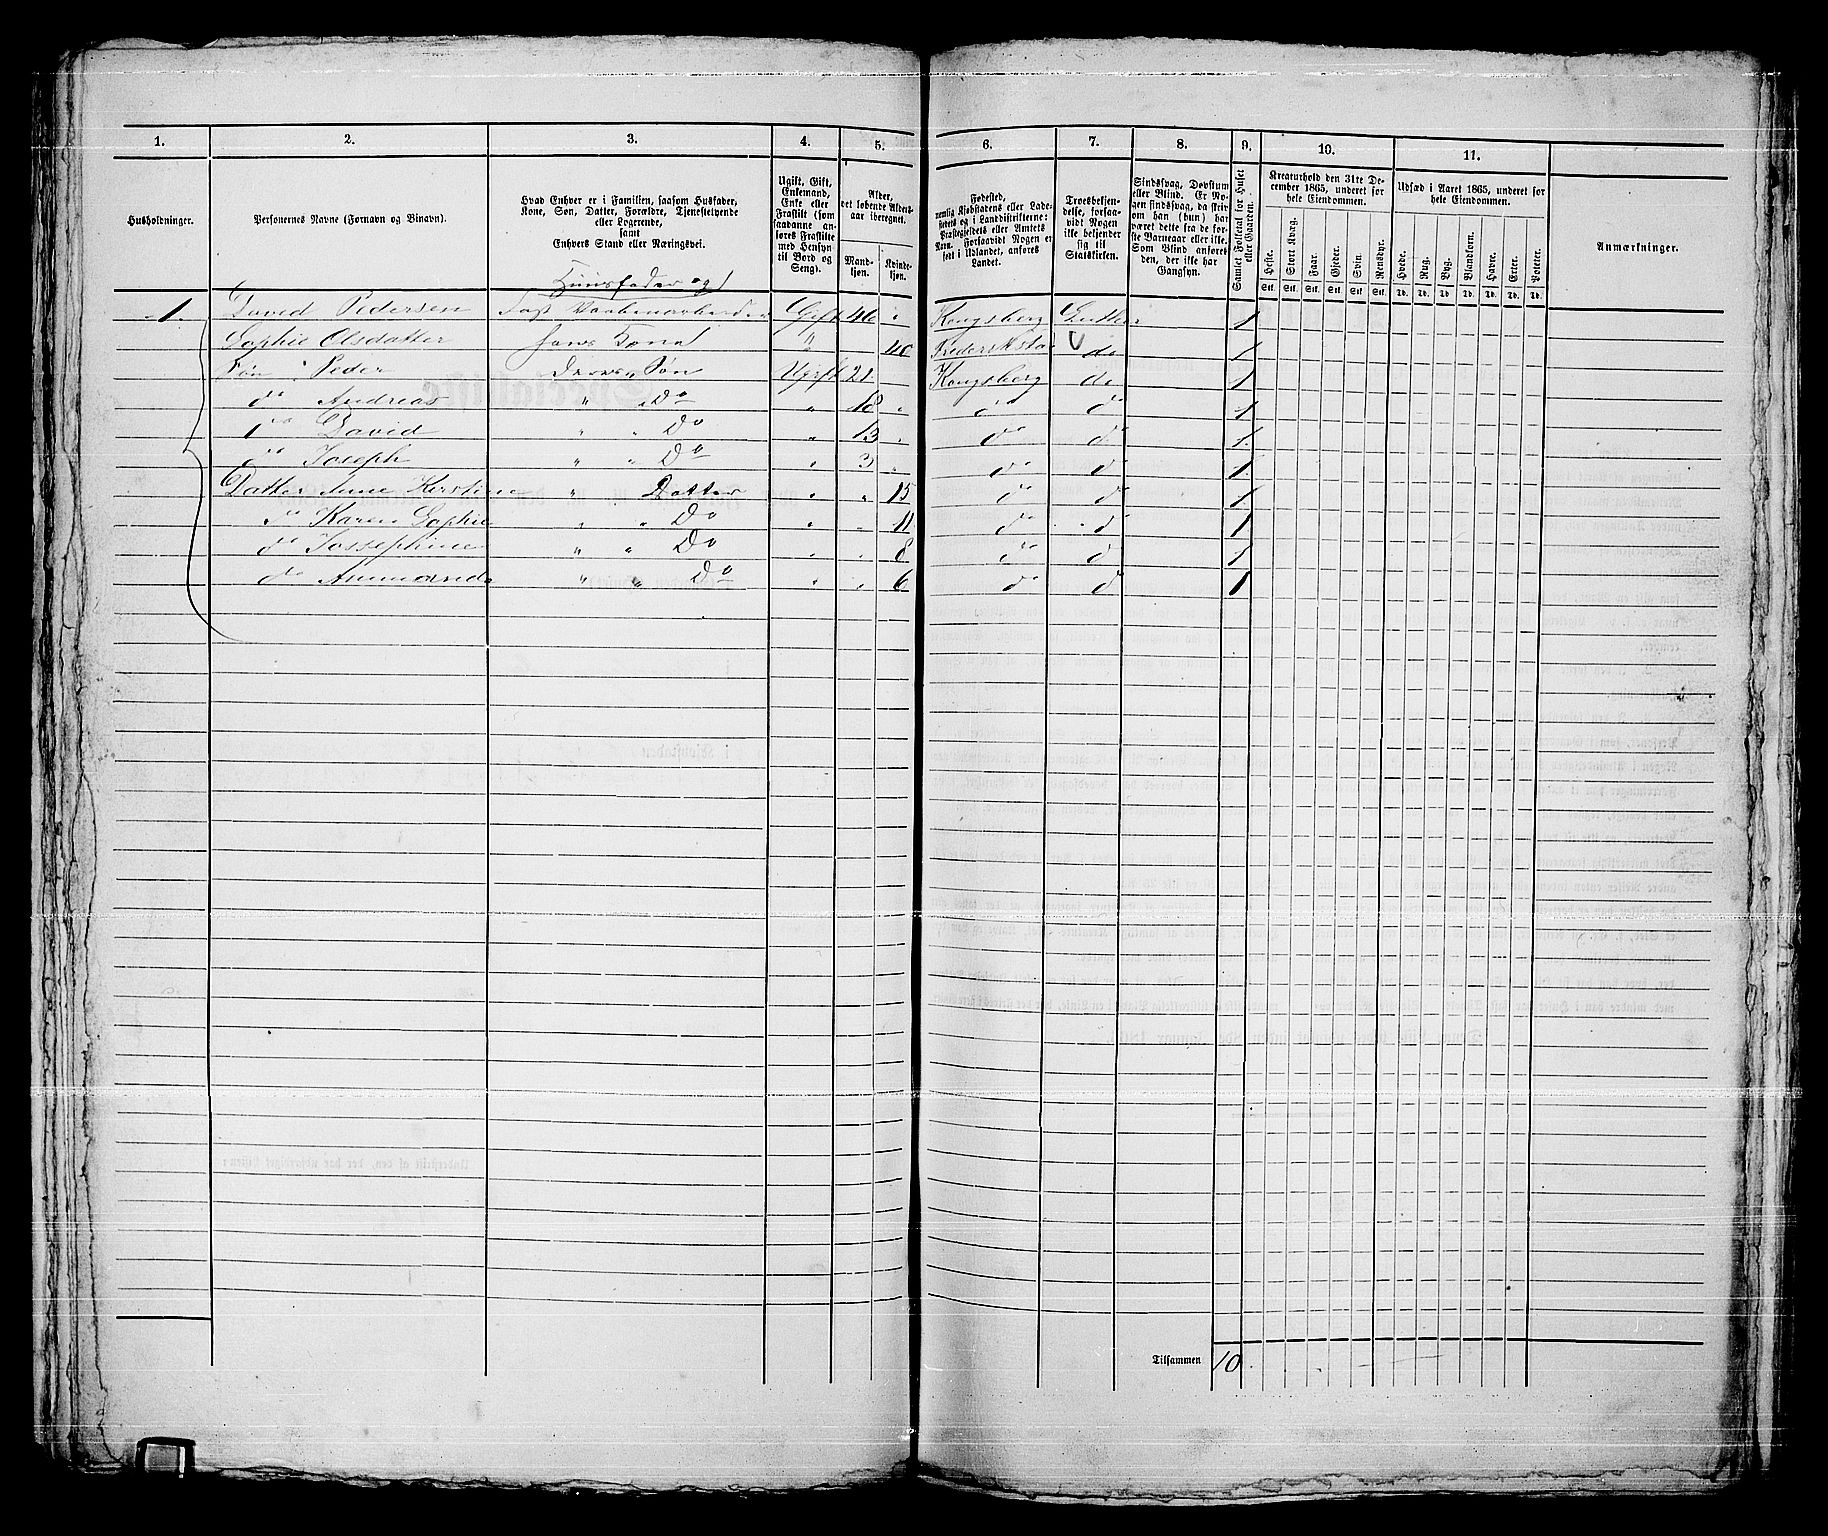 1. 2. 3. 4. 5. 6. 7. 8. 9. 10. 11.
Husholdninger.
Personernes Navne (Fornavn og Binavn).
Hvad Enhver er i Familien, saasom Husfader,
Kone, Søn, Datter, Forældre, Tjenestetyende
eller Logerende,
samt
Enhvers Stand eller Næringsvei.
Ugift, Gift,
Enkemand,
Enke eller
Fraskilt (som
saadanne an-
føres Fraskilte
med Hensyn
til Bord og
Seng).
Alder,
det løbende Alders-
aar iberegnet.
Mand-
kjøn.
Kvinde-
kjøn.
Fødested,
nemlig Kjøbstadens eller Lade-
stedets og i Landdistrikterne:
Præstegjeldets eller Amtets
Navn. Forsaavidt Nogen er
født i Udlandet, anføres
Landet.
Troesbekjen-
delse, forsaa-
vidt Nogen
ikke bekjender
sig til
Statskirken.
Sindssvag, Døvstum
eller Blind. Er No-
gen sindssvag, da skriv
om han (hun) har
været dette fra de for-
ste Barneaar eller ikke.
Som Blind anføres
den, der ikke har
Gangsyn.
Samlet Folketal for Huset
eller Gaarden.
Kreaturhold den 31te De-
cember 1865, underet for
hele Eiendommen.
Heste. Stort Kvæg. Faar. Gjeder. Svin. Rensdyr.
Stk. Stk. Stk. Stk. Stk. Stk.
Udsæd i Aaret 1865, underet for
hele Eiendommen.
Hvede. Rug. Byg. Blandkorn. Havre. Erter. Poteter.
Td. Td. Td. Td. Td. Td. Td.
Anmærkninger.
Huusfader og
1. David Pedersen Gift 46 " Kongsberg 1
Sophie Olsdatter hans Kone " 40 do 1
Søn " Peder Deres " Søn Ugift 21 Kongsberg do 1
do Andreas " " Do " 18 " do do 1
do David " " Do " 13 " do do 1
do Joseph " " Do " 3 " do do 1
Datter Anne Kirstine " Datter " " 15 do do 1
do Karen Sophie " " Do " " 11 do do 1
do Jossephine " " Do " " 8 do do 1
do " " Do " " 6 do do 1
Tilsammen 10